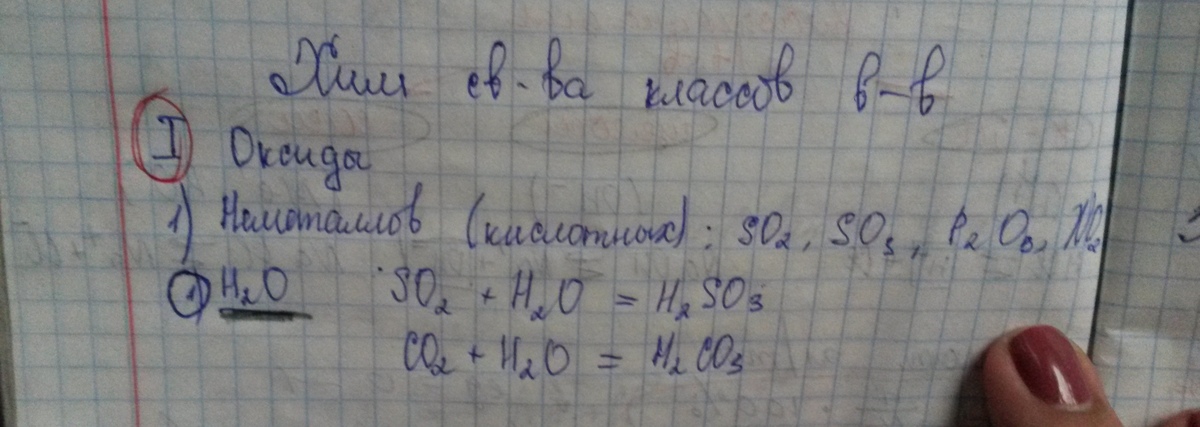 Хим св-ва классов в-в
I Оксиды
1) Неметаллов (кислотных): SO₂, SO₃, P₂O₃, NO₂
1) H₂O SO₂ + H₂O = H₂SO₃
CO₂ + H₂O = H₂CO₃